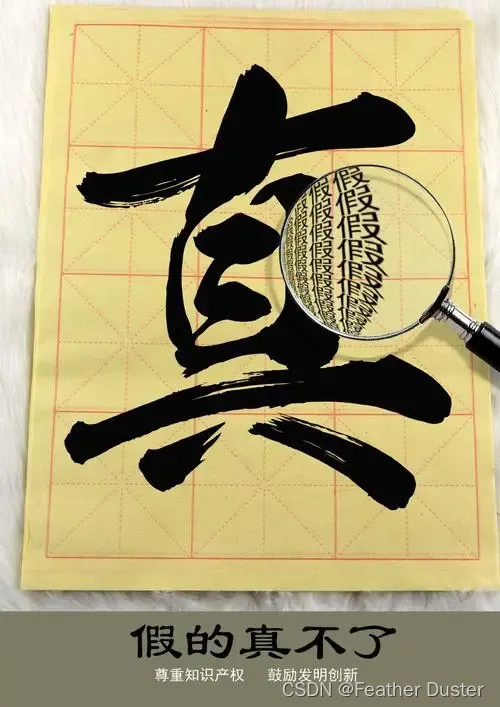 真
假假假假假假
假的真不了
尊重知识产权 鼓励发明创新
CSDN @Feather Duster